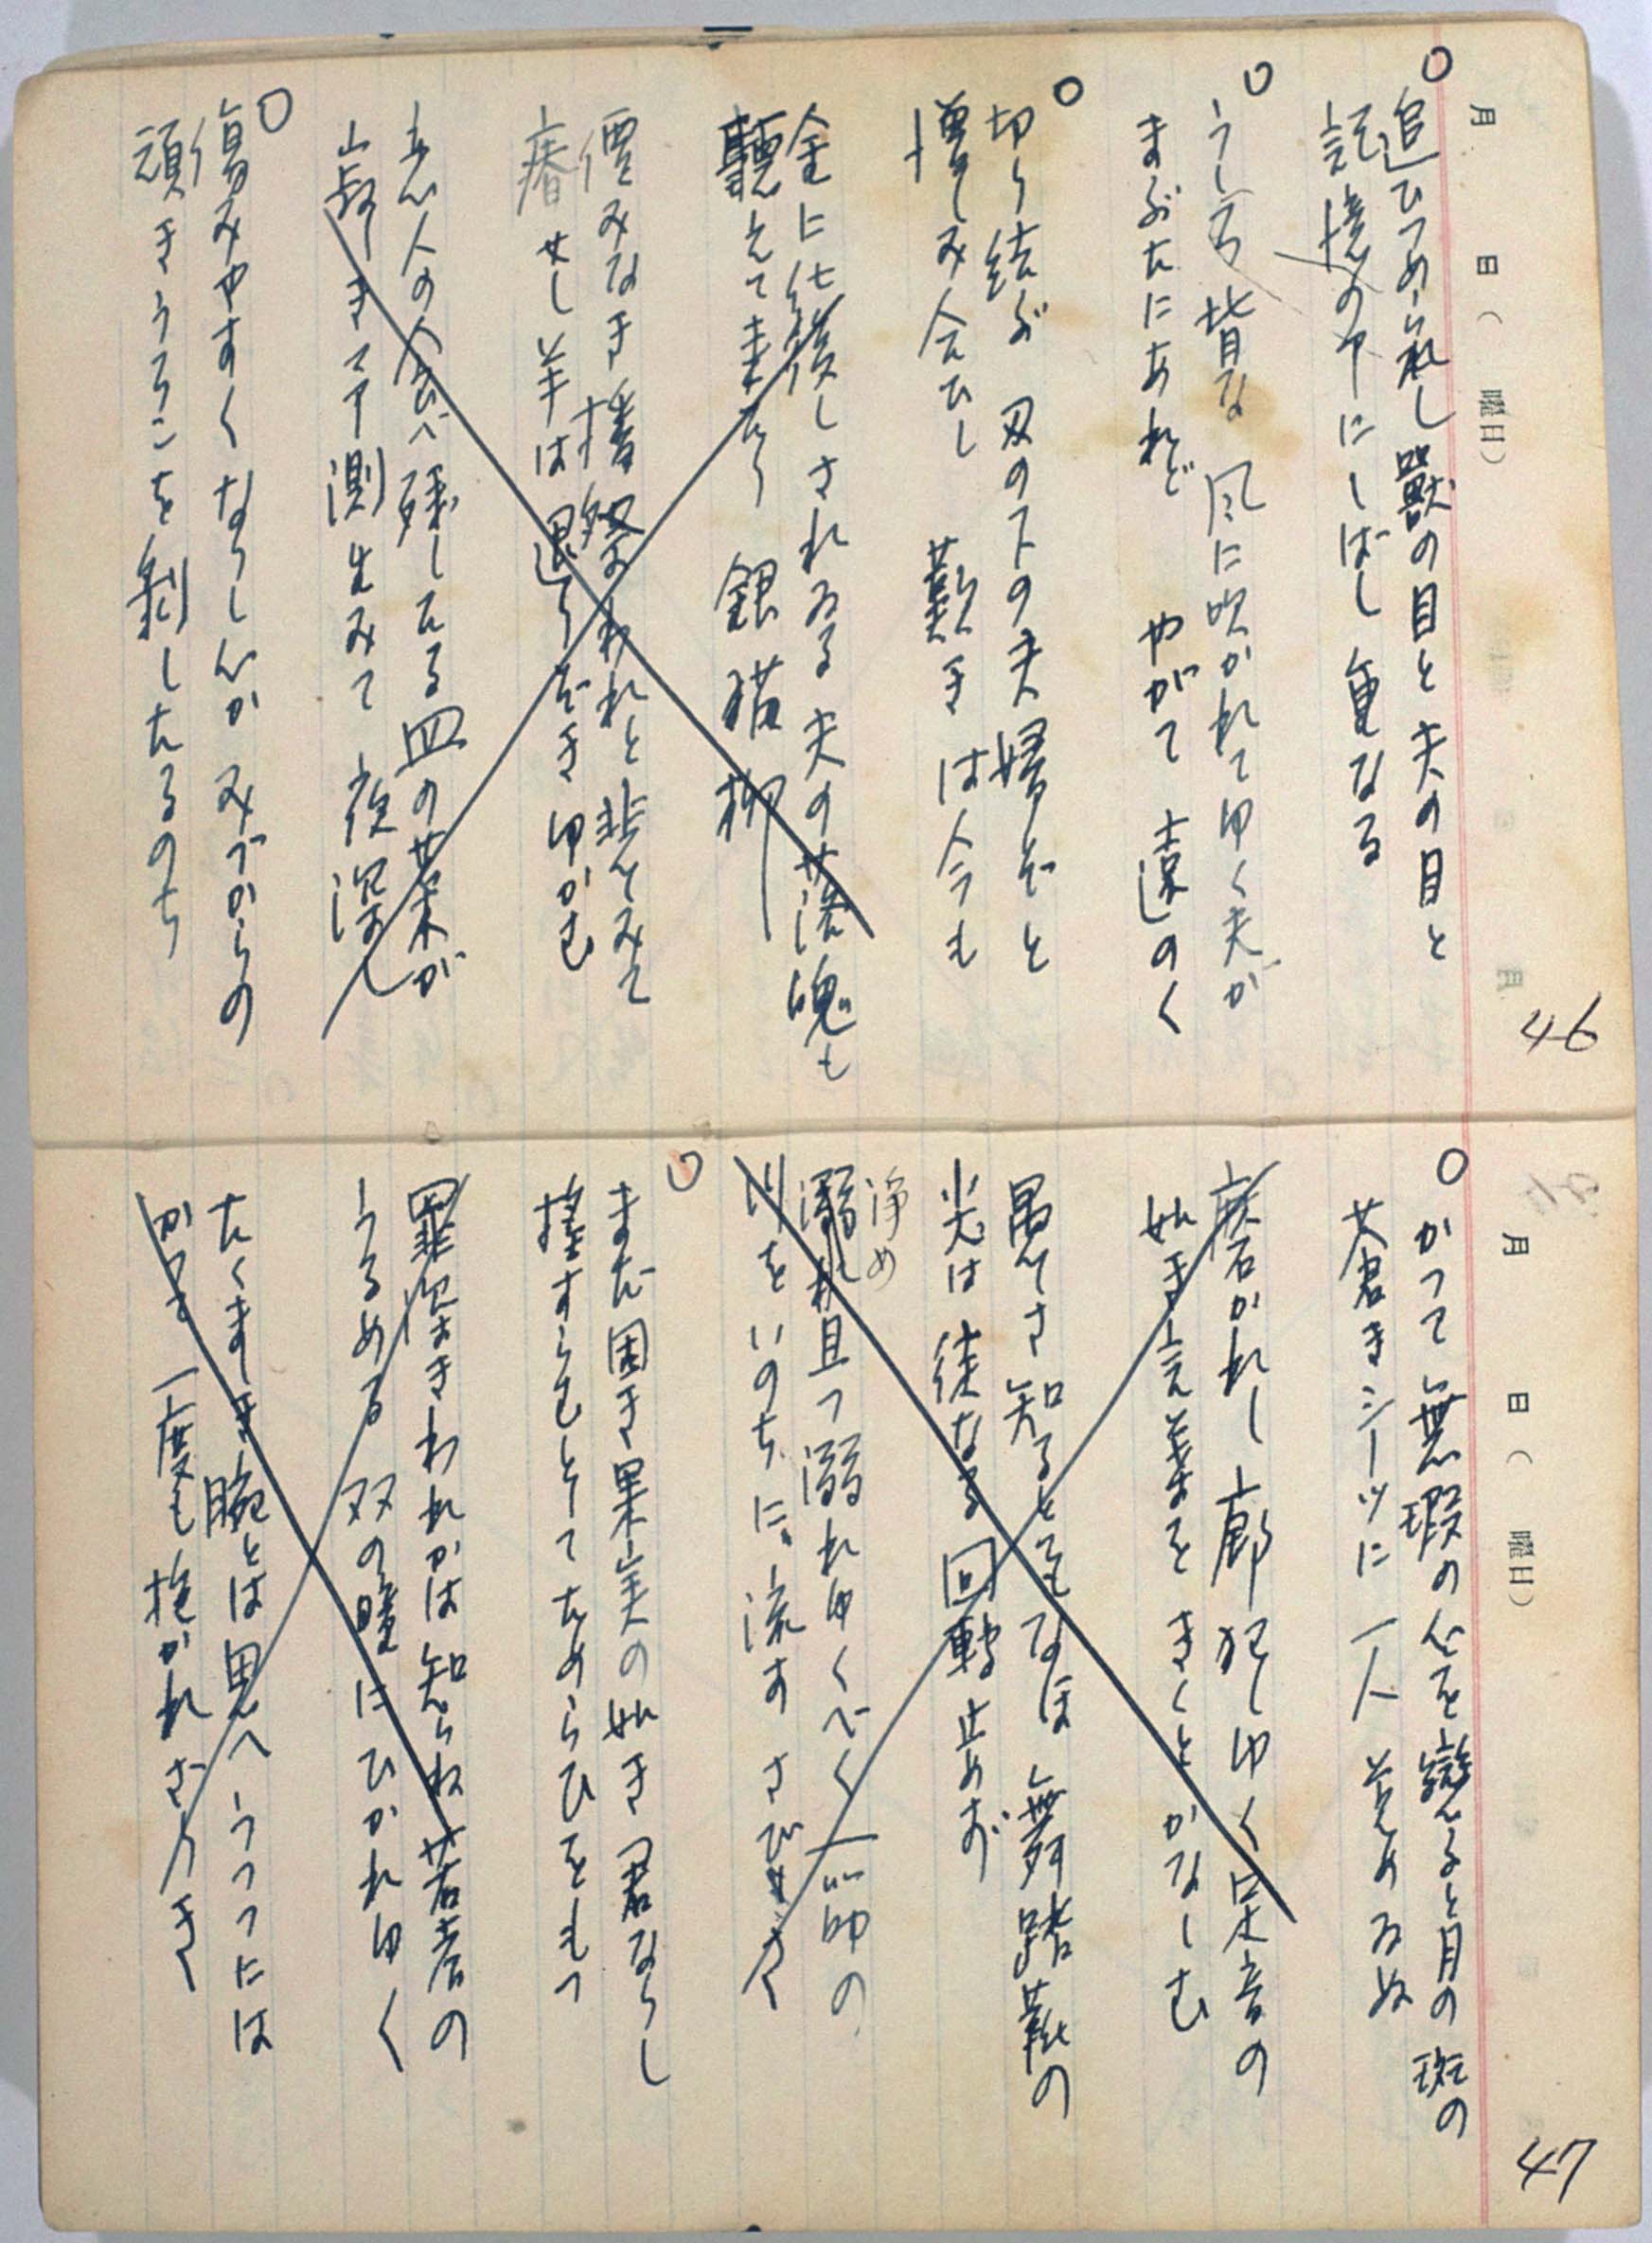 月 日( 曜日)
46
○追ひつめられし獸の目と夫の目と
記憶の中にしばし重なる
○うしろ背な 風に吹かれてゆく夫が
まぶたにあれど やがて遠のく
○切り結ぶ 刃の下の夫婦ぞと
憎しみ会ひし 歎きは今も
金に仕候しされゐる夫の落魄も
聽えて来たり 銀猫柳
価みなき 燔祭われと悲しみて
瘠せし羊は退りぞきゆかむ
恋人の食べ残したる皿の菜が
寂しき 測生みて 夜深し
○傷みやすくなりし心か みづからの
頑きうろこを剥したるのち
月 日( 曜日)
47
○かつて無瑕の心を戀ふると月の斑の
蒼きシーツに 一人覚めゐぬ
磨かれし廊犯しゆく足音の
如き言葉を きくと かなしむ
愚かさ知るともなほ 舞踏靴の
光は 徒なる 回轉止めず
浄め
溺れ且つ溺れゆくべく一茄の
川を いのちに 流す さびしさ
○まだ固き果実の如き君ならし
揺すらむとしてためらひをもつ
罪深きわれかは知らね 若者の
うるめる 双の瞳に ひかれゆく
たくましき腕とは思へ うつつには
かつて 一度も 抱かれざりき